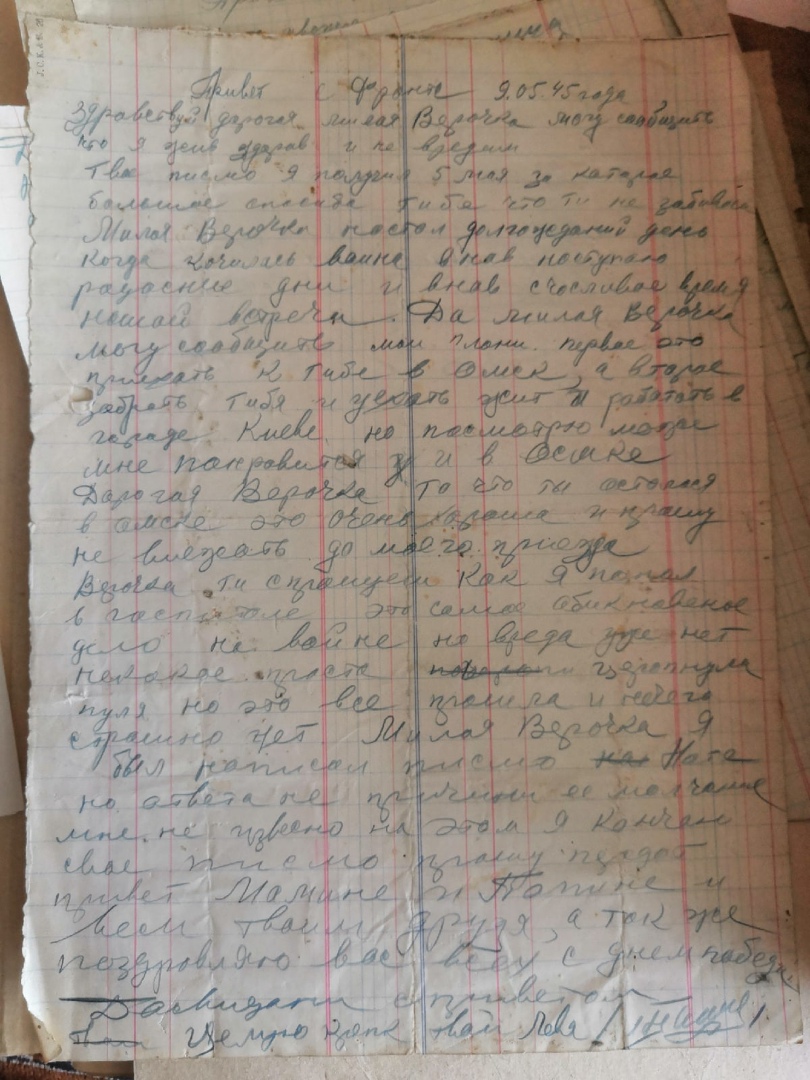 Привет с Фронта 9.05.45 года
Здравствуй дарогая милая Верочка могу сообщить
что я жив здарав и не вредим
Твое писмо я получил 5 мая за каторое
большое спасиба тибе что ти не забиваеш
Милая Верочка настал долгожданий день
когда кочилась вайна внов поступаю
радосние дни и внов счосливое время
нашой встречи. Да милая Верочка
могу сообщить мои плани. первое это
приехать к тибе в Омск, а второе
забрать тибя и уехать жит и работать в
гораде Киеве. но посмотрю може
мне понравится и в Омске
Дарогая Верочка то что ти осталася
в омске это очень хараша и прашу
не виежать до моего приезда
Верочка ти спрашуеш как я попал
в госпитале это самое обикновеное
дело на войне но вреда уже нет
некокое проста церапнула
пуля но это все прошла и нечего
страшно нет. Милая Верочка я
был написал писмо Ната
но ответа не причини ее молчание
мне не извесно на этом я кончаю
свое писмо прашу передой
привет Мамине и Папине и
всем твоим друзя, а так же
поздровляю вас всех с днем победи
Досвидани с приветом
Цемую твай Лева